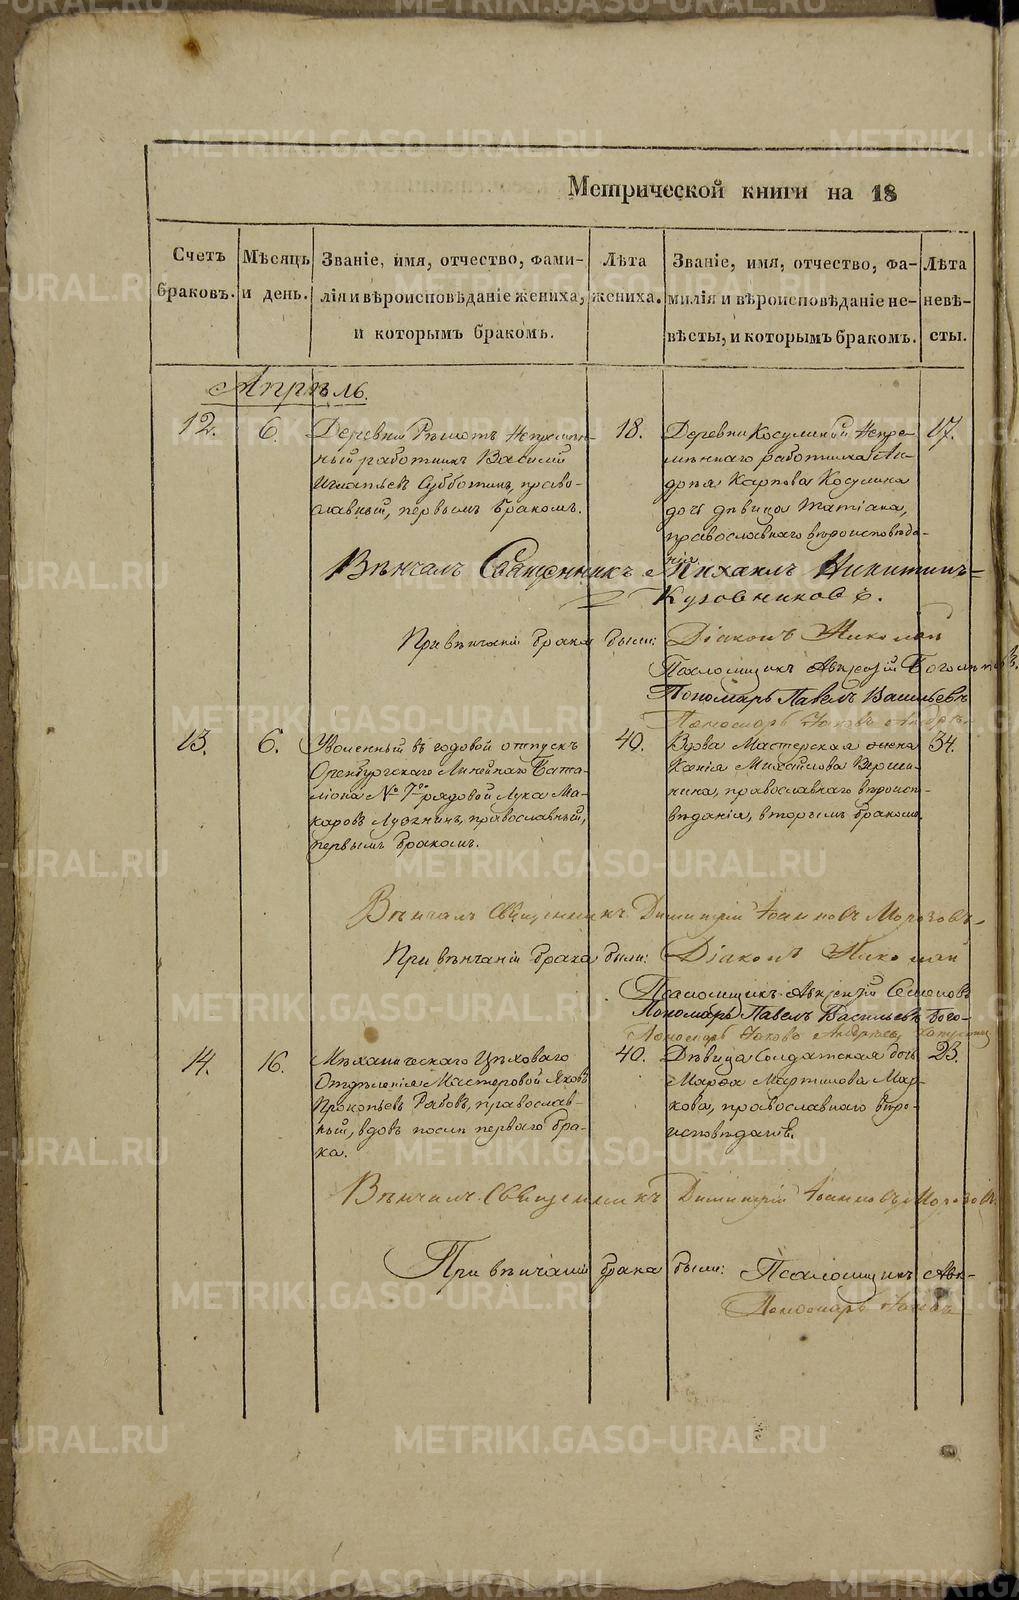 Метрической книги на 18
Счетъ браковъ.
Мѣсяцъ и день.
Званіе, имя, отчество, фами-
лія и вѣроисповѣданіе жениха,
и которымъ бракомъ.
Лѣта жениха.
Званіе, имя, отчество, фа-
милія и вѣроисповѣданіе не-
вѣсты, и которымъ бракомъ.
Лѣта невѣ-
сты.
Апрѣль.
12.
6.
Деревни Рѣшотъ Непремѣн-
ный работникъ Василій
Игнатьевъ Субботинъ, право-
славный, первымъ бракомъ.
18.
Деревни Косулиной Непре-
мѣннаго работника Ан-
дрея Карпова Косулина
дочь дѣвица Татіана,
православнаго вѣроисповѣда-
нія.
17.
Вѣнчалъ Священникъ Михаилъ Никитинъ
Кузовниковъ.
При вѣнчаніи брака были: Діаконъ Николай
Псаломщикъ
Пономарь Павелъ Васильевъ
Пономарь Іаковъ
13.
6.
Уволенный въ годовой отпускъ
Оренбургскаго Линейнаго Бата-
ліона № 7го рядовой Лука Ма-
каровъ Лузгинъ, православный,
первымъ бракомъ.
40.
Вдова Мастерская жена
Ксенія Михайлова Верши-
нина, православнаго вѣроиспо-
вѣданія, вторымъ бракомъ.
34.
Вѣнчалъ Священникъ Димитрій Іоанновъ Морозовъ
При вѣнчаніи брака были: Діаконъ Николай
Псаломщикъ Семеновъ
Пономарь Павелъ Васильевъ Бого-
Пономарь Іаковъ Андреевъ
14.
16.
Механическаго Цѣховаго
Отдѣленія Мастеровой Яковъ
Прокопьевъ Рябовъ, православ-
ный, вдовъ послѣ перваго бра-
ка.
40.
Дѣвица Солдатская дочь
Марѳа Мартинова Мар-
кова, православнаго вѣро-
исповѣданія.
23.
Вѣнчалъ Священникъ Димитрій Іоанновъ Морозовъ
При вѣнчаніи брака были: Псаломщикъ
Пономарь Іаковъ
METRIKI.GASO-URAL.RU